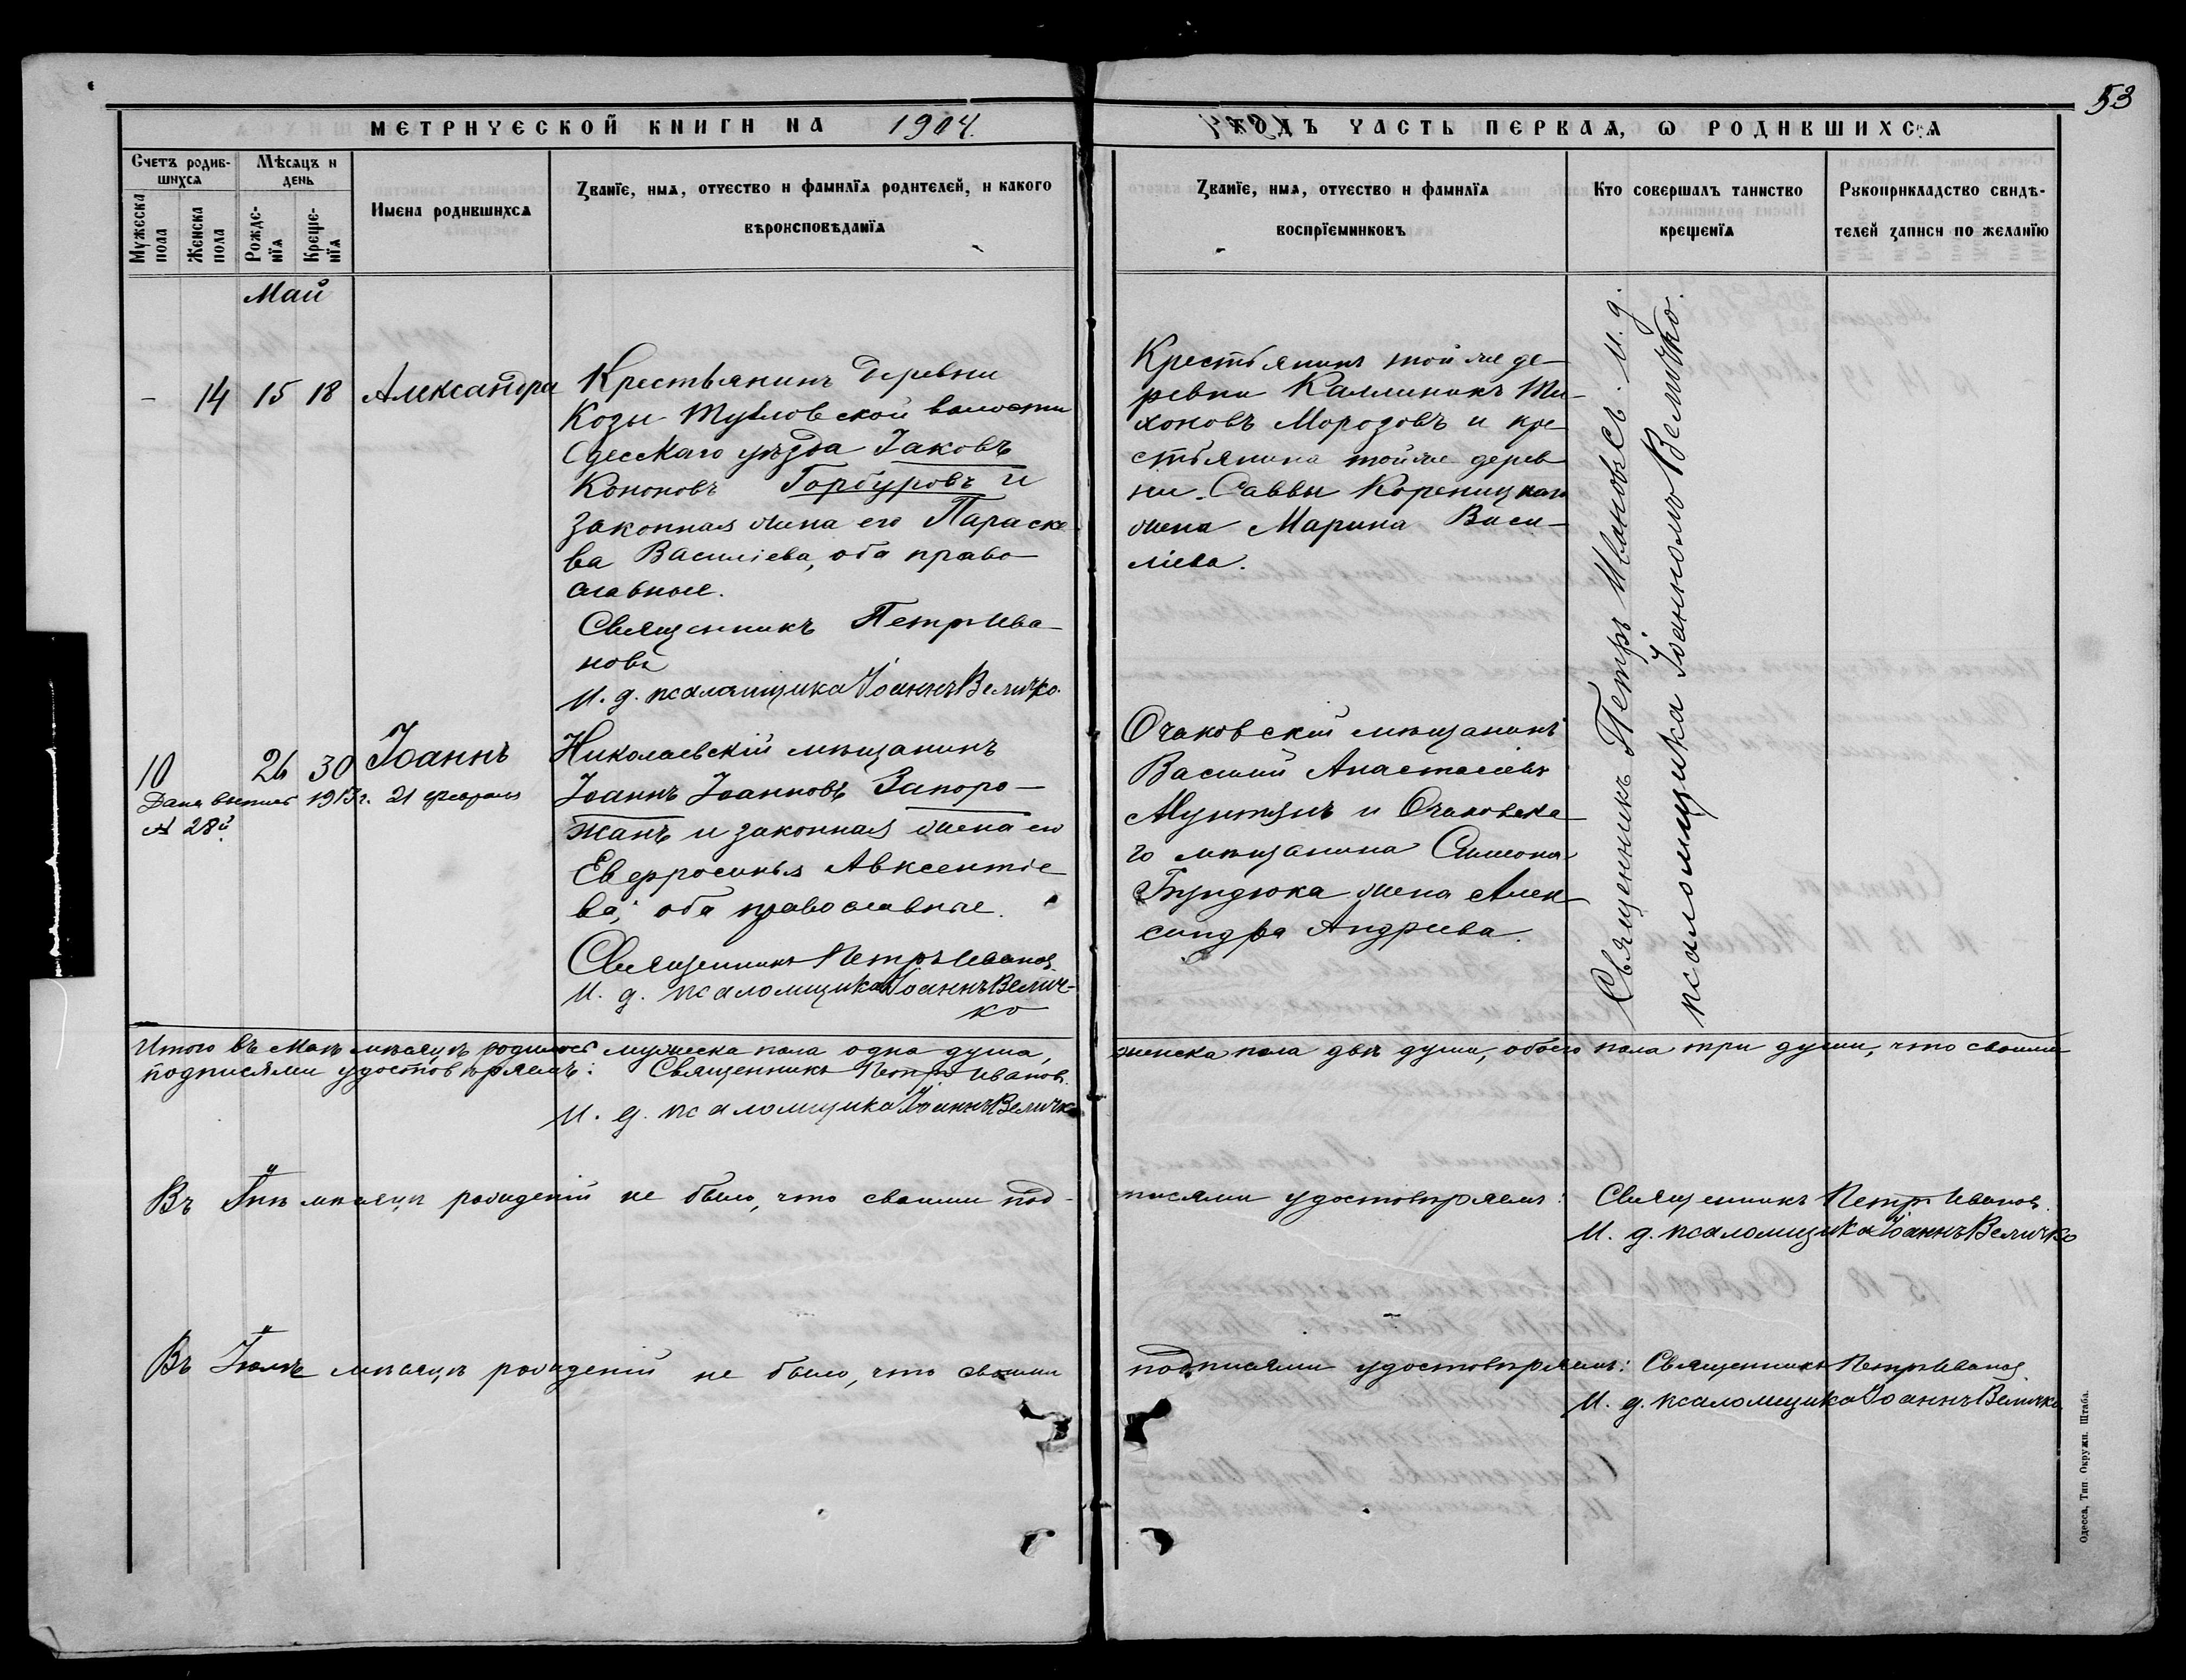 53
МЕТРИЧЕСКОЙ КНИГИ НА 1904.
ГОДЪ ЧАСТЬ ПЕРВАЯ, Ѡ РОДИВШИХСЯ
Счетъ родившихся
Мѣсяцъ и день
Мужеска пола
Женска пола
Рожденїя
Крещенїя
Имена родившихся
Званїе, имя, отчество и фамилїя родителей, и какого
вѣроисповѣданїя
Званїе, имя, отчество и фамилїя
воспрїемниковъ
Кто совершалъ таинство
крещенїя
Рукоприкладство свидѣ-
телей записи по желанїю
Май
- 14 15 18 Александра
Крестьянинъ деревни
Козы Тузловской волости
Одесскаго уѣзда Іаковъ
Кононовъ Горбуровъ и
законная жена его Параске
ва Василіева, оба право-
славные.
Священникъ Петръ Ива-
новъ
И. д. псаломщика Іоаннъ Величко.
Крестьянинъ той же де-
ревни Каллиникъ Ти-
хоновъ Морозовъ и кре-
стьянина той же дерев
ни Саввы Кореницкаго
жена Марина Васи-
ліева.
Священникъ Петръ Ивановъ. И. д.
псаломщика Іоаннъ Величко.
10 26 30 Іоаннъ
Дана выпись 1913 г. 21 февраля
№ 28й
Николаевскій мѣщанинъ
Іоаннъ Іоанновъ Запоро-
жанъ и законная жена его
Евфросинья Авксентіе
ва, оба православные.
Священникъ Петръ Ивановъ
И. д. псаломщика Іоаннъ Велич-
ко
Очаковскій мѣщанинъ
Василій Анастасіевъ
и Очаковска-
го мѣщанина Симона
жена Алек-
сандра Андреева.
Итого въ Маѣ мѣсяцѣ родилось мужеска пола одна душа, женска пола двѣ души, обоего пола три души, что своими
подписями удостовѣряемъ: Священникъ Петръ Ивановъ.
И. д. псаломщика Іоаннъ Величко
Въ Іюнѣ мѣсяцѣ рожденій не было, что своими под-
писями удостовѣряемъ: Священникъ Петръ Ивановъ.
И. д. псаломщика Іоаннъ Величко
Въ Іюлѣ мѣсяцѣ рожденій не было, что своими
подписями удостовѣряемъ: Священникъ Петръ Ивановъ
И. д. псаломщика Іоаннъ Величко
Одесса, Тип. Окружн. Штаба.